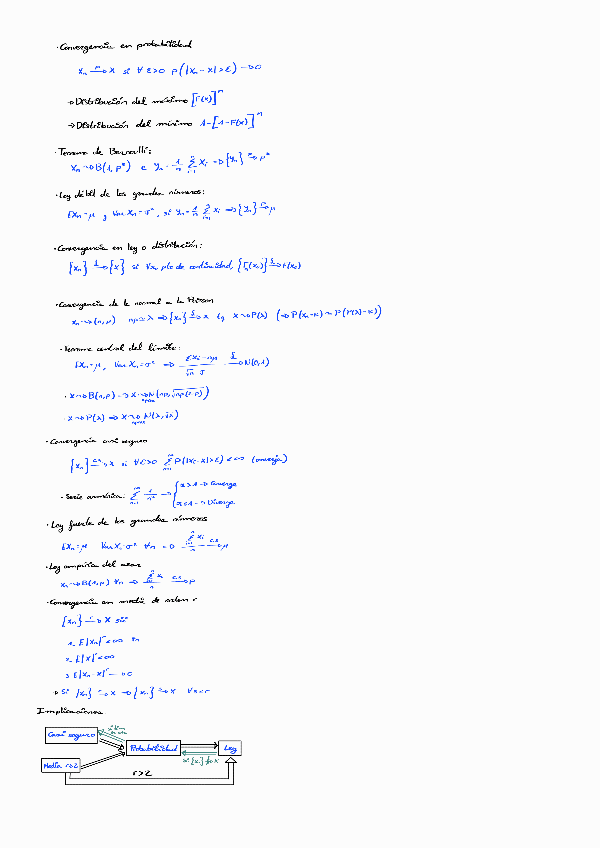 · Convergencia en probabilidad
Xn →P X si ∀ε>0 P(|Xn-X|>ε) → 0
→ Distribución del máximo [F(x)]^n
→ Distribución del mínimo 1-[1-F(x)]^n
· Teorema de Bernoulli:
Xn → B(1,p) e Yn = 1/n Σ Xi ⇒ {Yn} →P p
· Ley débil de los grandes números:
EXn=μ y Var Xn=σ², si Yn = 1/n Σ Xi ⇒ {Yn} →P μ
· Convergencia en ley o distribución:
{Xn} →L {X} si ∀x pto de continuidad, {Fn(x)} → F(x)
· Convergencia de la normal a la Poisson
np ≃ λ ⇒ {Xn} →L X X→P(λ) (⇒ P(Xn=k) ~ P(P(λ)=k))
· Teorema central del límite:
EXn=μ, Var Xn=σ² ⇒ (ΣXi - nμ)/(√n σ) →L N(0,1)
· X→B(n,p) ⇒ X → N(np, √np(1-p))
· X→P(λ) ⇒ X → N(λ, √λ)
· Convergencia casi seguro
{Xn} →c.s X si ∀ε>0 Σ P(|Xn-X|>ε) < ∞ (converja)
· Serie armónica: Σ 1/n^α → { α>1 → Converge
α≤1 → Diverge
· Ley fuerte de los grandes números
EXn=μ Var Xn=σ² ∀n ⇒ ΣXi/n →c.s μ
· Ley empírica del azar
Xn→B(1,p) ∀n ⇒ ΣXi/n →c.s p
· Convergencia en media de orden r
{Xn} →r X si
1. E|Xn|^r < ∞ ∀n
2. E|X|^r < ∞
3. E|Xn-X|^r → 0
→ Si {Xn} →r X ⇒ {Xn} →s X ∀s<r
Implicaciones
Casi seguro
Probabilidad
Ley
Media r≥2
r≥2